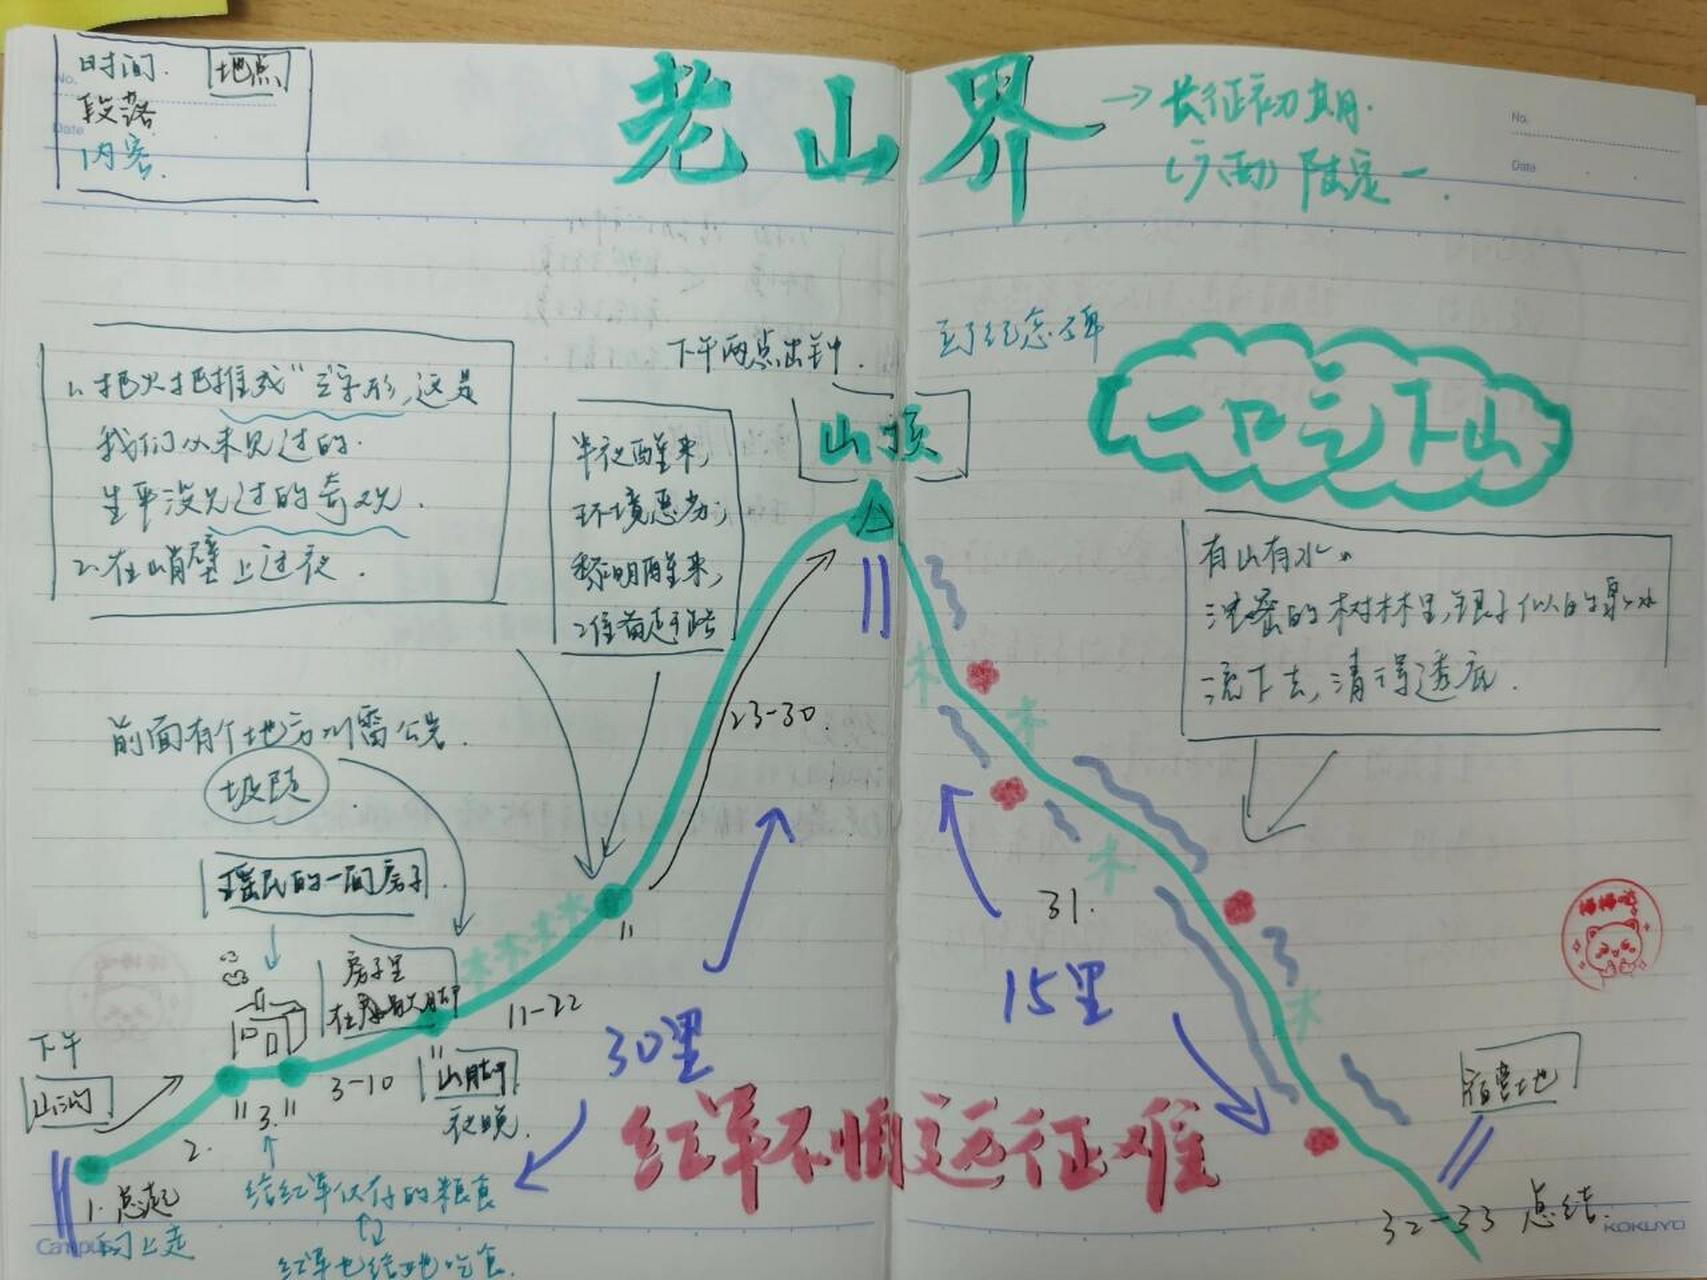 时间. 地点
段落
内容.
老山界
→长征初期.
(广西) 陆定一.
No.
Date
No.
Date
下午两点出钟.
到了纪念碑
山顶
一口气下山
1、把火把推成“之字形,这是
我们从未见过的.
生平没见过的奇观.
2、在峭壁上过夜.
半夜醒来,
环境恶劣;
黎明醒来,
准备赶路
有山有水。
浓密的树林里,银子似的泉水
流下去,清得透底.
前面有个地方叫雷公岩.
瑶民的一间房子.
房子里
23-30
11
11-22
30里
31.
15里
3-10
山脚
夜晚.
下午
山沟
2.
3.
1.总起
向上走
给红军仅存的粮食
红军也给她吃食.
红军不怕远征难
宿营地
32-33 总结.
Campus
KOKUYO
棒棒哒